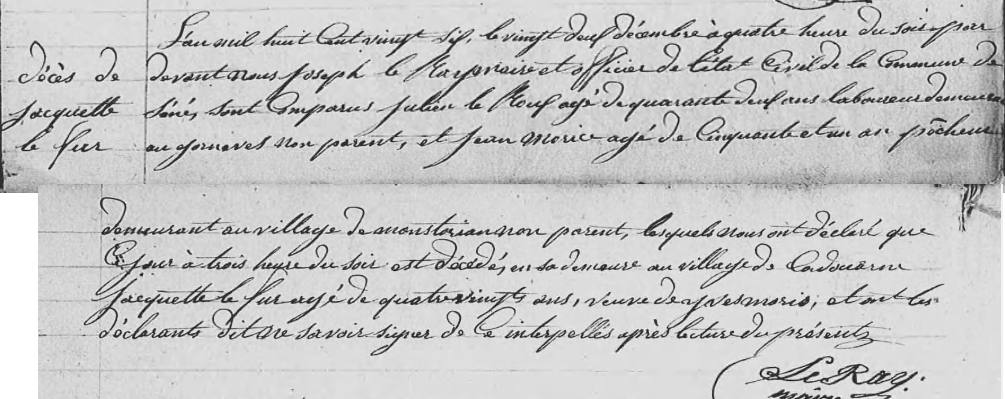 L'an mil huit cent vingt six, le vingt deux décembre à quatre heure du soir, par
décès de devant nous Joseph le Ray maire et officier de l'état Civil de la Commune de
jacquette Séné, sont Comparus julien le Rouf agé de quarante deux ans laboureur demeurant
le fur au gornevès non parent, et jean morice agé de Cinquante et un an pêcheur
demeurant au village de moustérian non parent, lesquels nous ont déclaré que
Ce jour à trois heure du soir est décédé, en sa demeure au village de Cadouarn
jacquette le fur agé de quatre vingts ans, veuve de yves morio, et ont les
déclarants dit ne savoir signer de Ce interpellés après lecture du présent
Le Ray.
maire